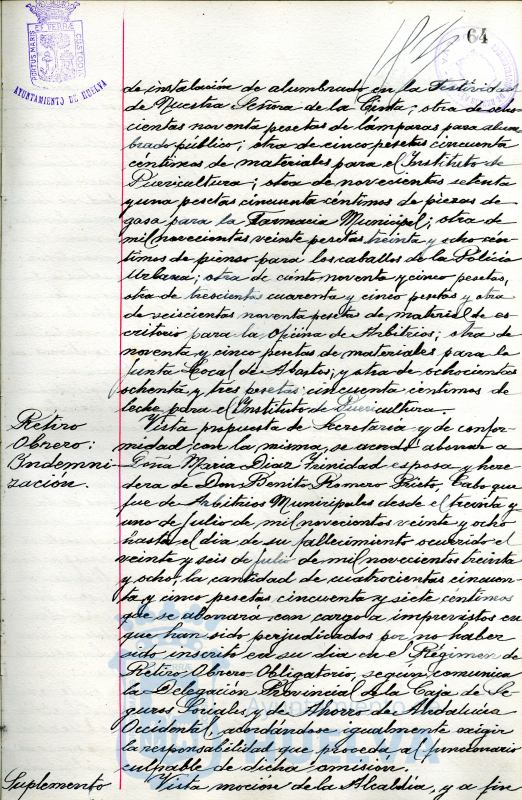 64
PORTUS MARIS ET TERRÆ CUSTODIA
AYUNTAMIENTO DE HUELVA
de instalación de alumbrado en la Festividad
de Nuestra Señora de la Cinta; otra de seis-
cientas noventa pesetas de lámparas para alum-
brado público; otra de cinco pesetas cincuenta
céntimos de materiales para el Instituto de
Puericultura; otra de novecientas setenta
y una pesetas cincuenta céntimos de piezas de
gasa para la Farmacia Municipal; otra de
mil novecientas veinte pesetas treinta y ocho cén-
timos de pienso para los caballos de la Policía
Urbana; otra de ciento noventa y cinco pesetas,
otra de trescientas cuarenta y cinco pesetas y otra
de seiscientas noventa pesetas de material de es-
critorio para la Oficina de Arbitrios; otra de
noventa y cinco pesetas de materiales para la
Junta Local de Abastos; y otra de ochocientas
ochenta y tres pesetas cincuenta centimos de
leche para el Instituto de Puericultura.
Retiro
Obrero:
Indemni-
zación.
Vista propuesta de Secretaría y de confor-
midad con la misma, se acordó abonar a
Doña Maria Diaz Trinidad esposa y here-
dera de Don Benito Romero Prieto, Cabo que
fue de Arbitrios Municipales desde el treinta y
uno de julio de mil novecientos veinte y ocho
hasta el dia de su fallecimiento ocurrido el
veinte y seis de julio de mil novecientos treinta
y ocho, la cantidad de cuatrocientas cincuen-
ta y cinco pesetas cincuenta y siete céntimos
que se abonará con cargo a imprevistos en
que han sido perjudicados por no haber
sido inscrito en su dia en el Régimen de
Retiro Obrero Obligatorio, segun comunica
la Delegación Provincial de la Caja de Se-
guros Sociales y de Ahorro de Andalucia
Occidental acordándose igualmente exigir
la responsabilidad que proceda al funcionario
culpable de dicha omisión.
Suplemento
Vista moción de la Alcaldía, y a fin
Ayuntamiento de
HUELVA